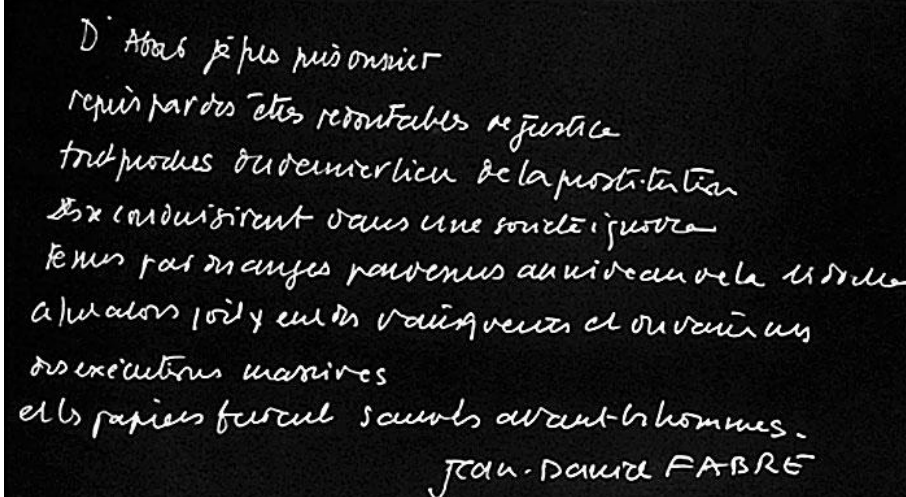 D' Abord je fus prisonnier
repris par des êtres redoutables de justice
tout proches du dernier lieu de la prostitution
conduisirent dans une société ignorée
tenus par des anges parvenus au niveau de la
alors qu'il y eut des vainqueurs et du vaincus
des exécutions massives
et les papiers furent sauvés avant les hommes.
Jean-Daniel FABRE